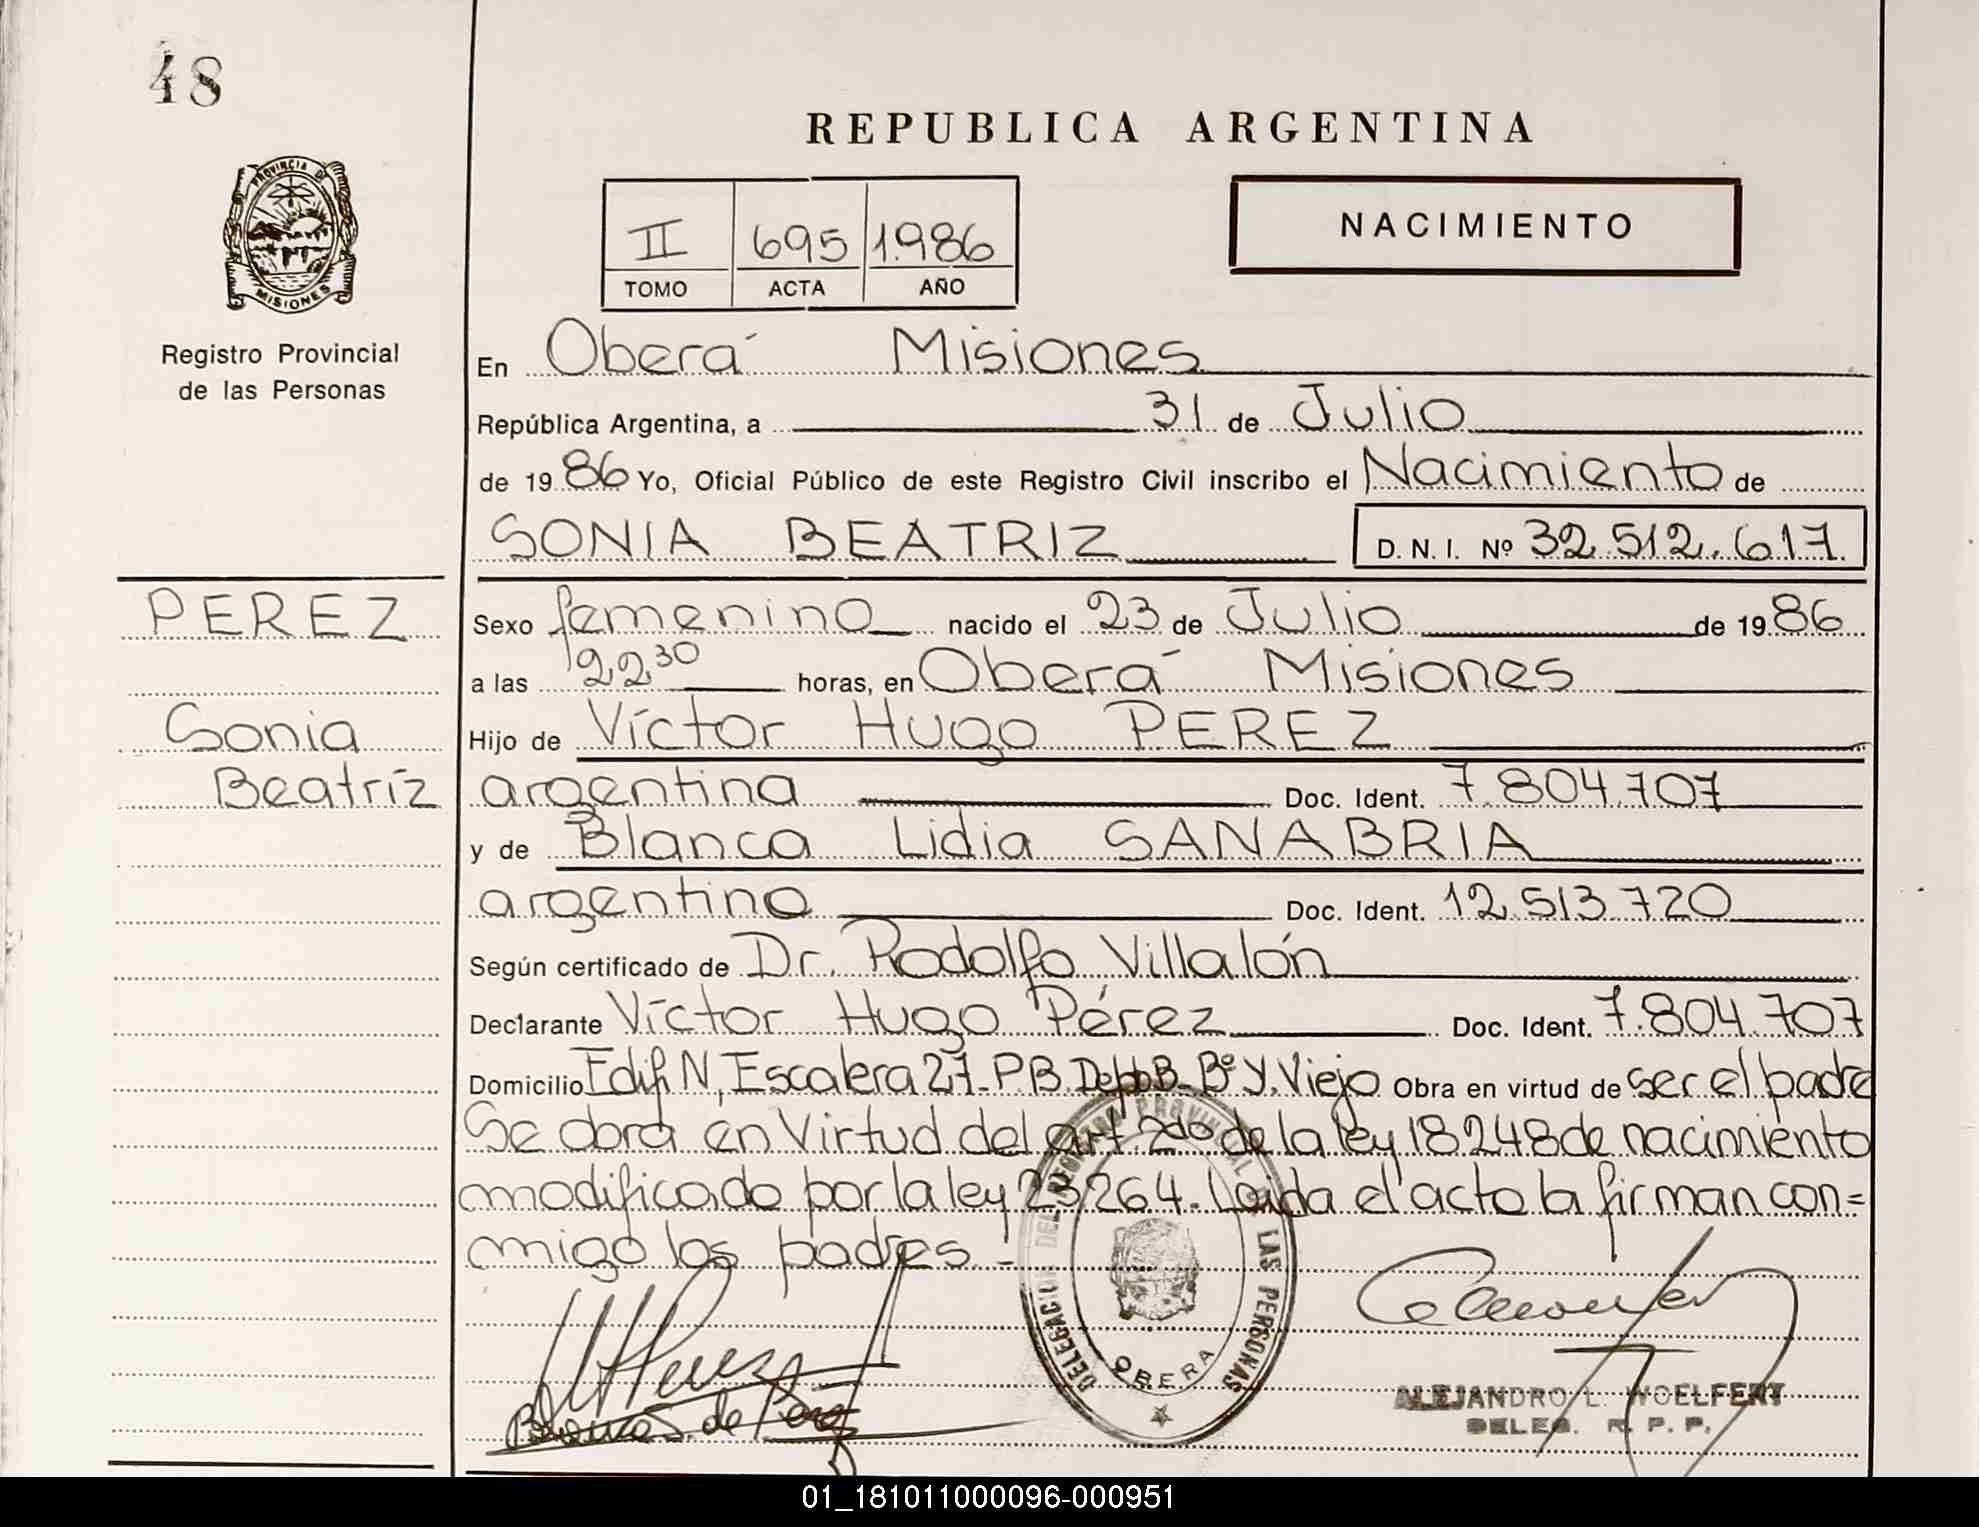 48
REPUBLICA ARGENTINA
PROVINCIA DE
MISIONES
Registro Provincial
de las Personas
II 695 1.986
TOMO ACTA AÑO
NACIMIENTO
En Oberá Misiones
República Argentina, a 31 de Julio
de 1986 Yo, Oficial Público de este Registro Civil inscribo el Nacimiento de
SONIA BEATRIZ D. N. I. Nº 32.512.617.
PEREZ
Sonia
Beatríz
Sexo femenino nacido el 23 de Julio de 1986
a las 22 30 horas, en Oberá Misiones
Hijo de Víctor Hugo PEREZ
argentina Doc. Ident. 7.804.707
y de Blanca Lidia SANABRIA
argentina Doc. Ident. 12.513.720
Según certificado de Dr. Rodolfo Villalón
Declarante Víctor Hugo Pérez Doc. Ident. 7.804.707
Domicilio Edif. N, Escalera 27- P.B. Depto B- Bº Y. Viejo Obra en virtud de ser el padre
Se obra en Virtud del art. 2do de la ley 18.248 de nacimiento
modificado por la ley 23.264.- Leída el acto la firman con=
migo los padres.-
DELEGACION DEL REGISTRO PROVINCIAL DE LAS PERSONAS
OBERA
ALEJANDRO L. WOELFERT
DELEG. R. P. P.
01_181011000096-000951